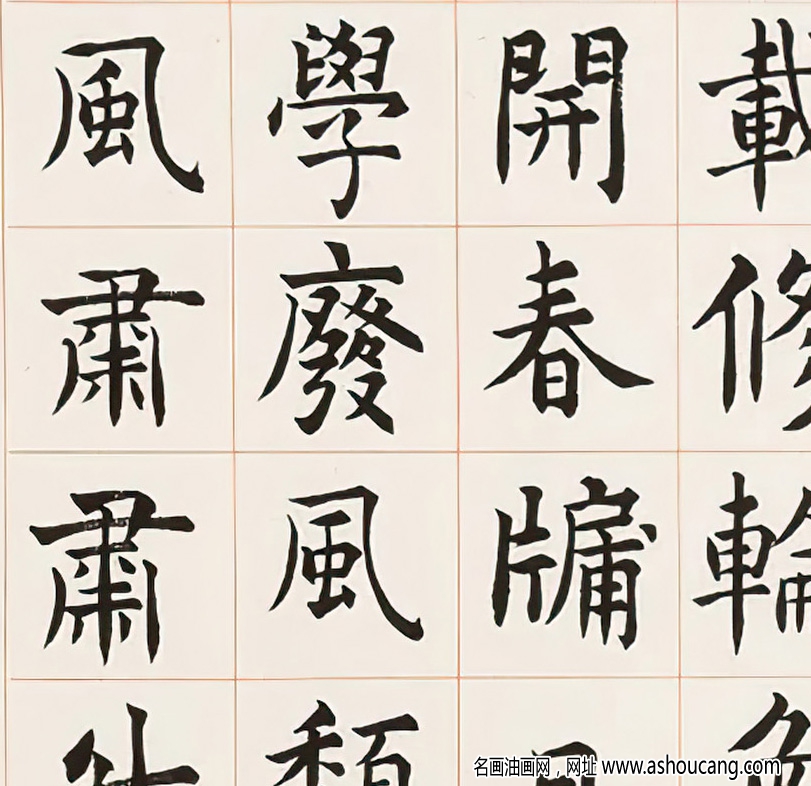 載修輪
開春牖
學廢風
風肅肅
名画油画网，网址 www.ashoucang.com